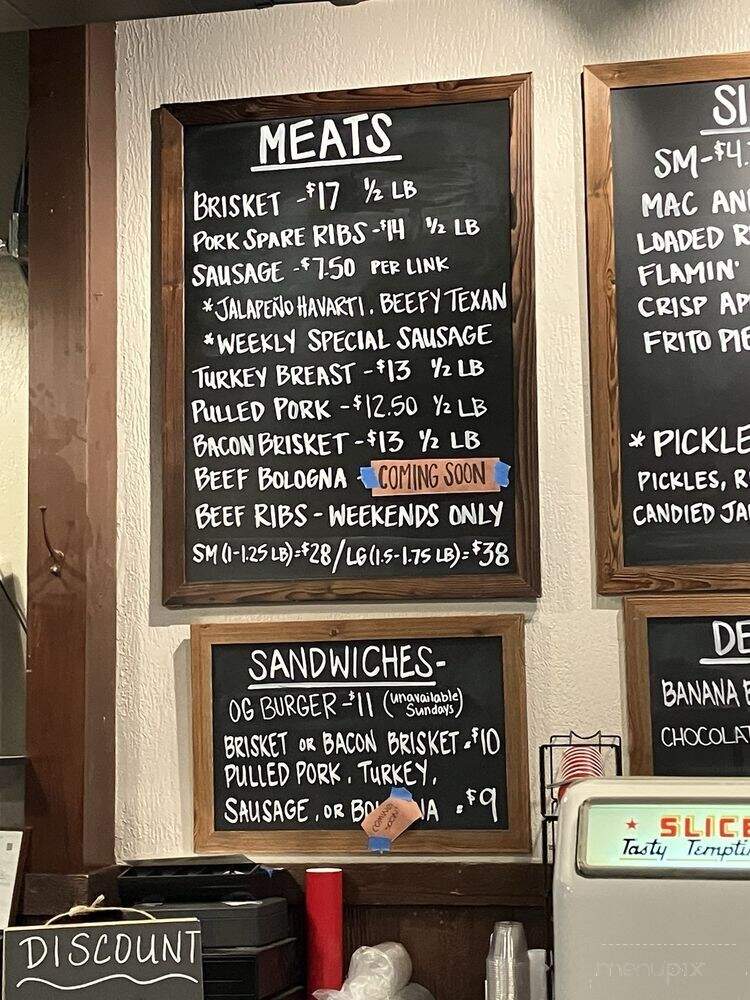 MEATS
BRISKET -$17 ½ LB
PORK SPARE RIBS -$14 ½ LB
SAUSAGE -$7.50 PER LINK
*JALAPEÑO HAVARTI, BEEFY TEXAN
*WEEKLY SPECIAL SAUSAGE
TURKEY BREAST -$13 ½ LB
PULLED PORK -$12.50 ½ LB
BACON BRISKET -$13 ½ LB
BEEF BOLOGNA - COMING SOON
BEEF RIBS - WEEKENDS ONLY
SM (1-1.25 LB)=$28/LG (1.5-1.75 LB)=$38
SANDWICHES-
OG BURGER -$11 (unavailable Sundays)
BRISKET OR BACON BRISKET =$10
PULLED PORK, TURKEY,
SAUSAGE, OR BO NA =$9
COMING SOON
SI
SM-$4.
MAC AN
LOADED R
FLAMIN'
CRISP AP
FRITO PIE
*PICKLE
PICKLES, R
CANDIED JA
DE
BANANA
CHOCOLAT
SLICE
Tasty Tempti
DISCOUNT
menupix